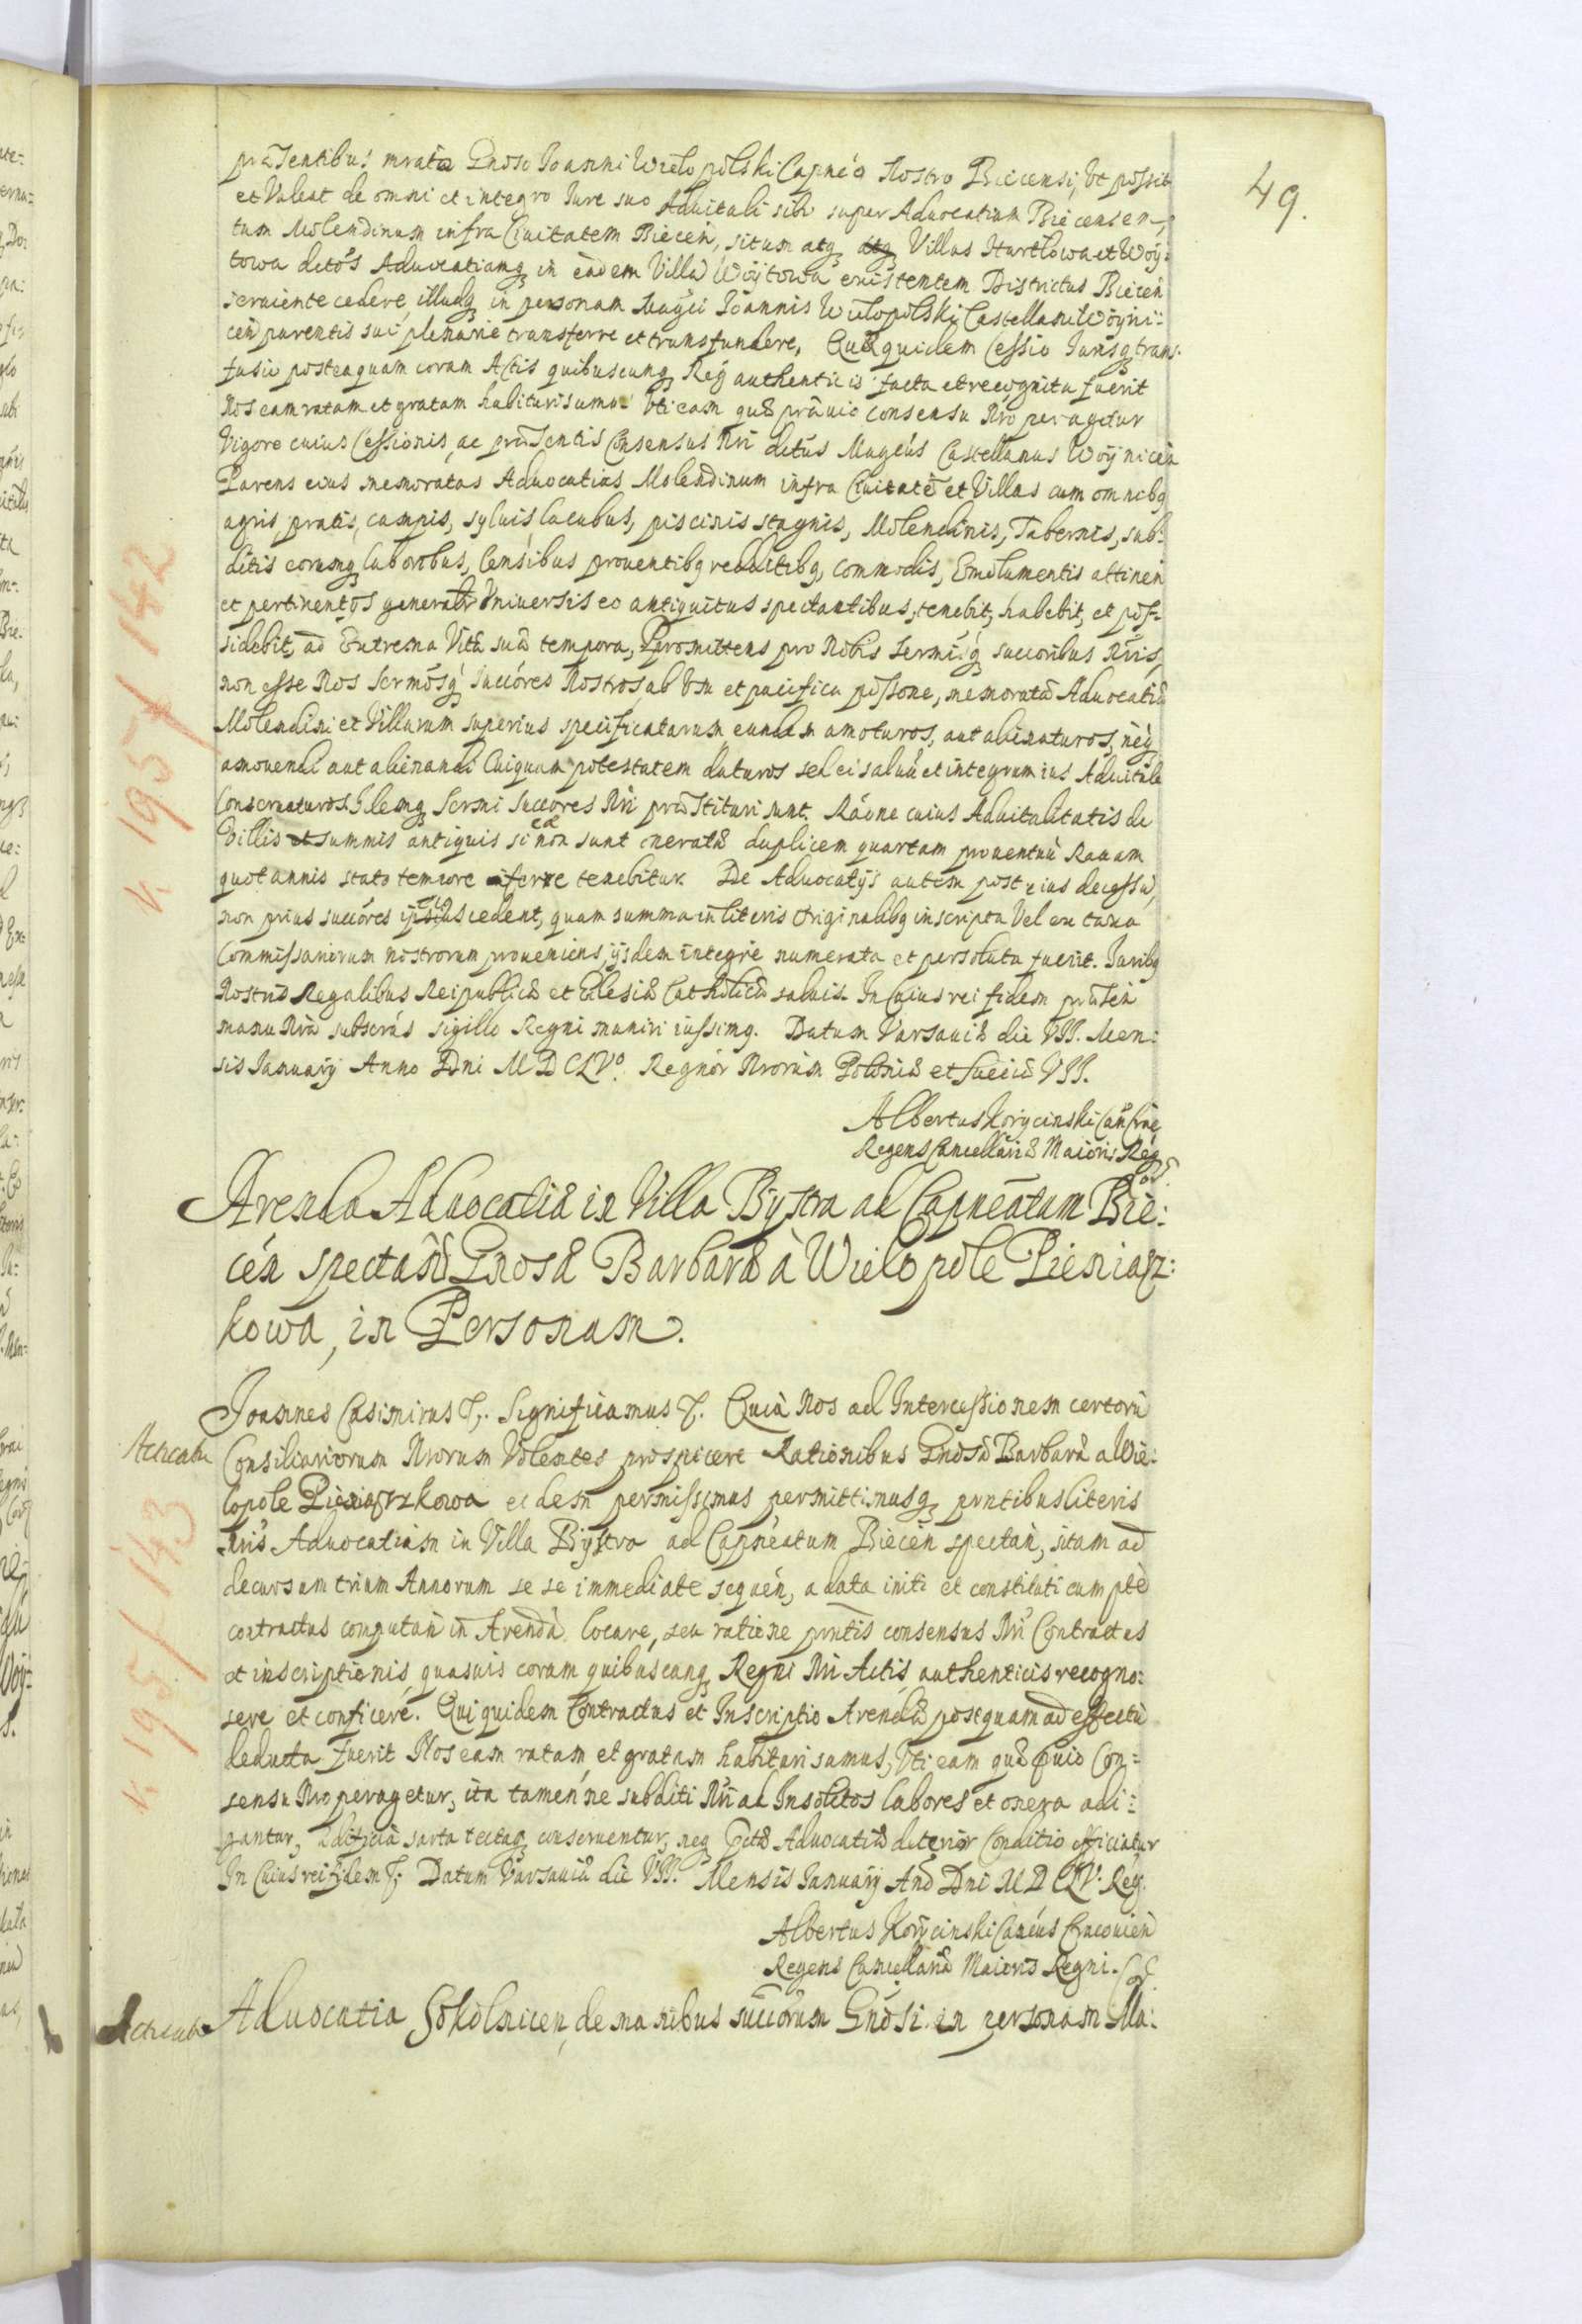 49.
præsentibus nratæ Gnoso Joanni Wielopolski Capneo Nostro Biecensi, Vt possit
et Valeat de omni et integro Iure suo Aduitali sibi super Aduocatiam Biecensem,
tum Molendinum infra Ciuitatem Biecen, situm atq Villas Hartlowa et Woÿ:
towa dctos Aduocatiamq in eadem Villa Woÿtowa existentem Districtus Biecen
seruiente cedere, illudq in personam Magci Joannis Wielopolski Castellani Woÿni:
cen parentis sui plenarie transferre et transfundere, Quæ quidem Cessio Iurisq trans:
fusio posteaquam coram Actis quibuscunq Reg authenticis facta et recognita fuerit
Nos eam ratam et gratam habituri sumus Vti eam quæ præuio consensu Nro peragetur
Vigore cuius Cessionis, ac præsentis Consensus Nri dctus Magcus Castellanus Woÿnicen
Parens eius memoratas Aduocatias Molendinum infra Ciuitate et Villas cum omnibq
agris, pratis, campis, syluis, lacubus, piscinis stagnis, Molendinis, Tabernis, sub:
ditis eorumq laboribus, Censibus prouentibq redditibq, commodis, Emolumentis attinen
et pertinentos generalr Vniuersis eo antiquitus spectantibus, tenebit, habebit, et pos:
sidebit, ad Extrema Vitæ suæ tempora, Promittens pro Nobis Sermisq succoribus Nris,
non esse Nos Sermosq succores Nostros, ab Vsu et pacifica possone, memoratæ Aduocatiæ
Molendini et Villarum superius specificatarum eundem amoturos, aut alienaturos, neq
amouendi aut alienandi Cuiquam potestatem daturos sed ei saluu et integrum ius Aduitale
Conseruaturos Idemq Sermi Succores Nri præstituri sunt. Raone cuius Aduitalitatis de
Villis summis antiquis si eæ non sunt oneratæ duplicem quartam prouentuu Rauam
quotannis stato tempore inferre tenebitur. De Aduocatÿs autem post eius decessu,
non prius succores cedent, quam summa in literis Originalibq inscripta Vel ex taxa
Commissariorum nostrorum proueniens, ÿsdem integre numerata et persoluta fuerit. Juribq
Nostris Regalibus Reipublicæ et Eclesiæ Catholicæ saluis. In Cuius rei fidem præsen
manu Nra subscras sigillo Regni muniri iussimq. Datum Varsauiæ die VII. Men:
sis Januarÿ Anno Dni MDCLVo. Regnor Nrorum Poloniæ et Sueciæ VII.
Albertus Korycinski Can Crac
Regens Cancellariæ Maioris Reg
Arenda Aduocatiæ in Villa Bÿstra ad Capneatum Bie:
cen spectan Gnosæ Barbaræ à Wielopole Pieniaz:
kowa, in Personam.
Joannes Casimirus &. Significamus &. Quia Nos ad Intercessionem certoru
Acticatu
Consiliariorum Nrorum Volentes prospicere Rationibus Gnosæ Barbaræ a Wie:
lopole Pieniązkowa eidem permissimus permittimusq pntibus literis
Nris Aduocatiam in Villa Bÿstra ad Capneatum Biecen spectan, sitam ad
decursum trium Annorum se se immediate sequen, a data initi et constituti cum
contractus computan in Arenda locare, seu ratione pntis consensus Nri Contractus
et inscriptionis quasuis coram quibuscunq Regni Nri Actis, authenticis recogno:
scre et conficere. Qui quidem Contractus et Inscriptio Arendæ postquam ad effectu
deducta fuerit Nos eam ratam, et gratam habituri sumus, Vti eam quæ Con=
sensu Nro peragetur, ita tamen ne subditi Nri ad Insolitos labores et onera adi:
gantur, Ædificia sarta tectaq conseruentur, neq Aduocatiæ deterior Conditio efficiatur
In Cuius rei fidem &. Datum Varsauiæ die VII. Mensis Januarÿ Ano Dni MDCLV. Reg.
Albertus Korÿcinski Cancus Cracouien
Regens Cancellariæ Maioris Regni.
Aduocatia Sokolnicen, de manibus succorum Gnosi in personam Ma:
k 195/142
k 195/143